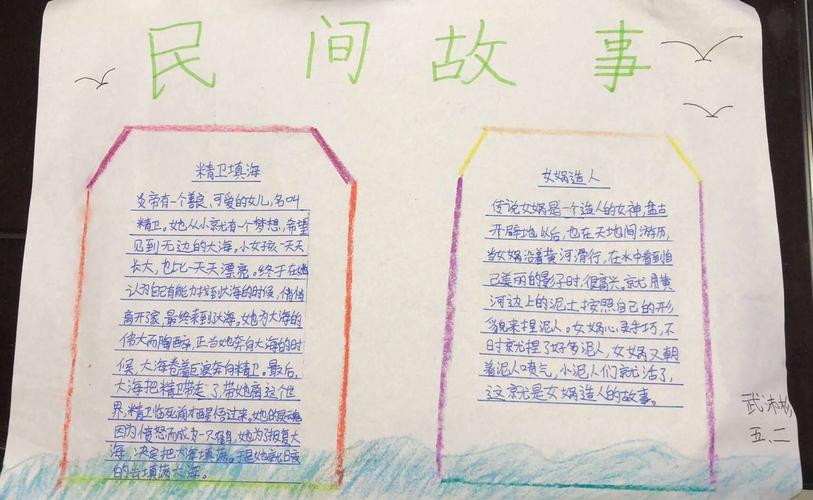 民间故事
精卫填海
炎帝有一个善良、可爱的女儿,名叫
精卫。她从小就有一个梦想,希望
见到无边的大海。小女孩一天天
长大,也比一天天漂亮。终于在她
认为自己有能力找到大海的时候,悄悄
离开了家,最终来到大海。她为大海的
伟大而陶醉,正当她奔向大海的时
候,大海卷着巨浪奔向精卫。最后,
大海把精卫带走了,带她离这个世
界,精卫临死前才醒悟过来。她的灵魂
因为愤怒而成为一只鸟,她为了报复大
海,决定把大海填满。于是她就日夜
的去填满大海。
女娲造人
传说女娲是一个造人的女神,盘古
开辟地以后,也在天地间游历,
当女娲沿着黄河滑行,在水中看到自
己美丽的影子时,很高兴。就用黄
河边上的泥土按照自己的形
貌来捏泥人。女娲心灵手巧,不
时就捏了好多泥人,女娲又朝
着泥人喷气,小泥人们就活了,
这就是女娲造人的故事。
武
五、二